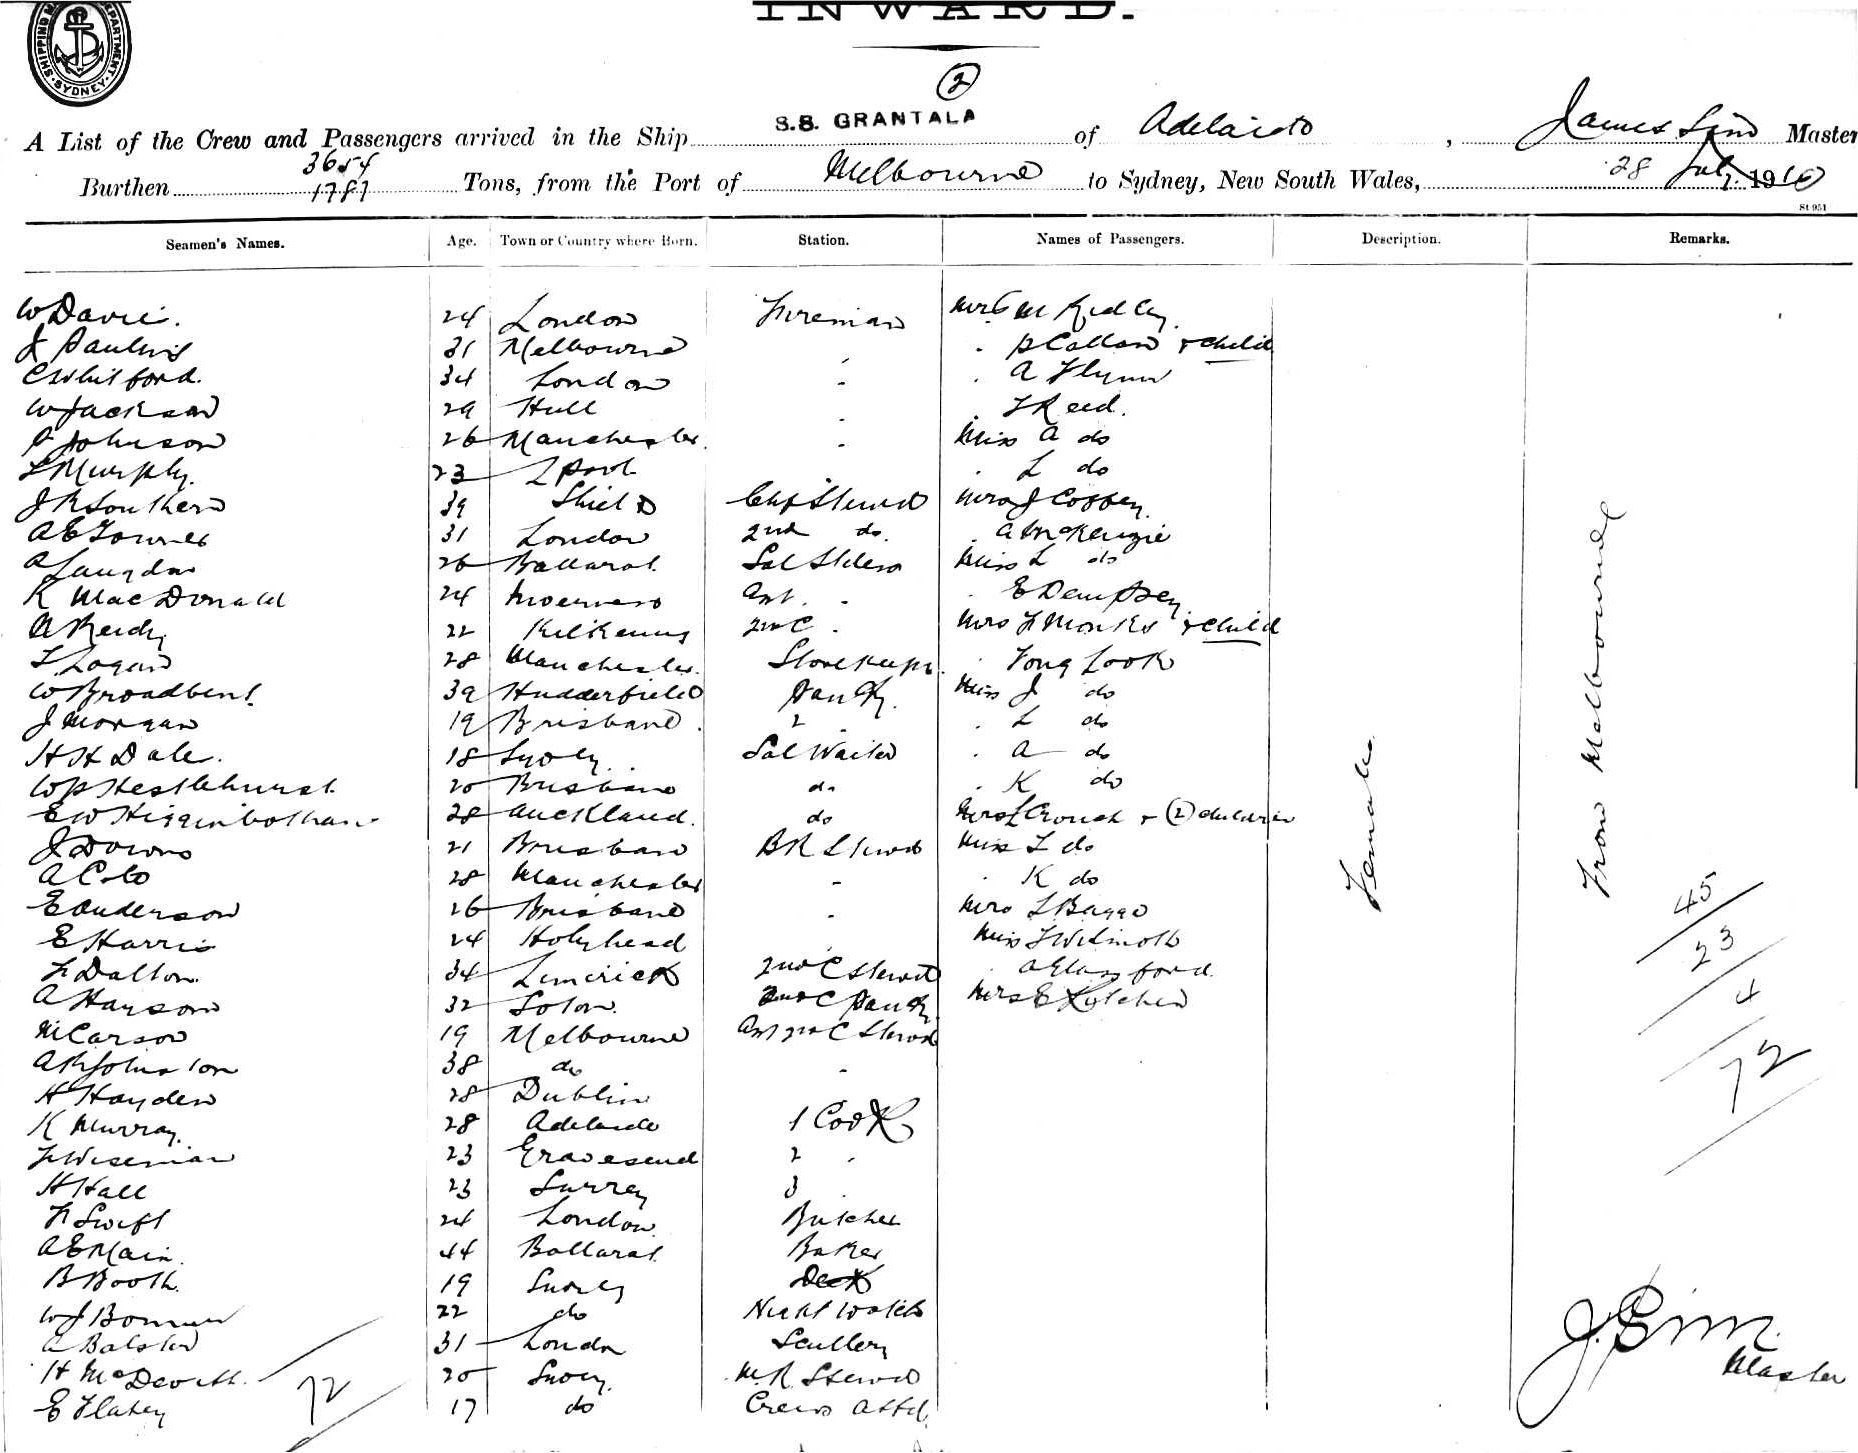 INWARD.
SHIPPING DEPARTMENT SYDNEY
2
A List of the Crew and Passengers arrived in the Ship S.S. GRANTALA of Adelaide, James Sim Master
3654
Burthen 1781 Tons, from the Port of Melbourne to Sydney, New South Wales, 28 July 1910
St 951
Seamen's Names. Age. Town or Country where Born. Station. Names of Passengers. Description. Remarks.
W Davis. 24 London Fireman Mrs M Ridley
J 31 Melbourne " " Callan & child
C Whitford. 34 London " " A Flynn
W Jackson 29 Hull " " F Reed.
Johnson 26 Manchester. " Miss A do
L Murphy. 23 L pool " " L do
J R Southern 39 Shields Chf Steward Mrs J Coffey
A E Townes 31 London 2nd do. " A McKenzie
A Langdon 26 Ballarat. Sal Miss L do
K MacDonald 24 Inverness Ast. " " E Dempsey
A Reidy 22 Kilkenny 2nd C " Mrs F Monks & child
L Logan 28 Manchester. Storekeepr. " Fong Look
W Broadbent 39 Hudderfield Pantry. Miss J do
J Morgan 19 Brisbane. 2 " " L do
H H Dale. 18 Sydney. Sal Waiter " A do
W P Hestlehurst 20 Brisbane do " K do
E W Higginbotham 28 Auckland. do Mrs L Crouch & (2) children
J Downs 21 Brisbane B R Steward Miss L do
A 28 Manchester " " K do
E Anderson 26 Brisbane " Mrs L Baggo
E Harris 24 Holyhead " Miss F Wilmoth
F Dalton. 34 Limerick 2nd C Steward " A Glassford.
A Hanson 32 Soton. 2nd C Pantry Mrs E Kutcher
M Carson 19 Melbourne Ast 2nd C Steward
A R Johnston 38 do "
H Hayden 28 Dublin
K Murray. 28 Adelaide 1 Cook
F Wiseman 23 Gravesend 2 "
H Hall 23 Surrey 3 "
F Swift 24 London. Butcher
A E Main. 44 Ballarat. Baker
B Booth. 19 Sydney Deck
W J 22 do Night Watch
A Balster 31 London Scullery
H McDevitt. 20 Sydney. M. R. Steward
E Flahey 17 do Crews Attd.
72
Female
From Melbourne
45
23
4
72
J. Sim.
Master